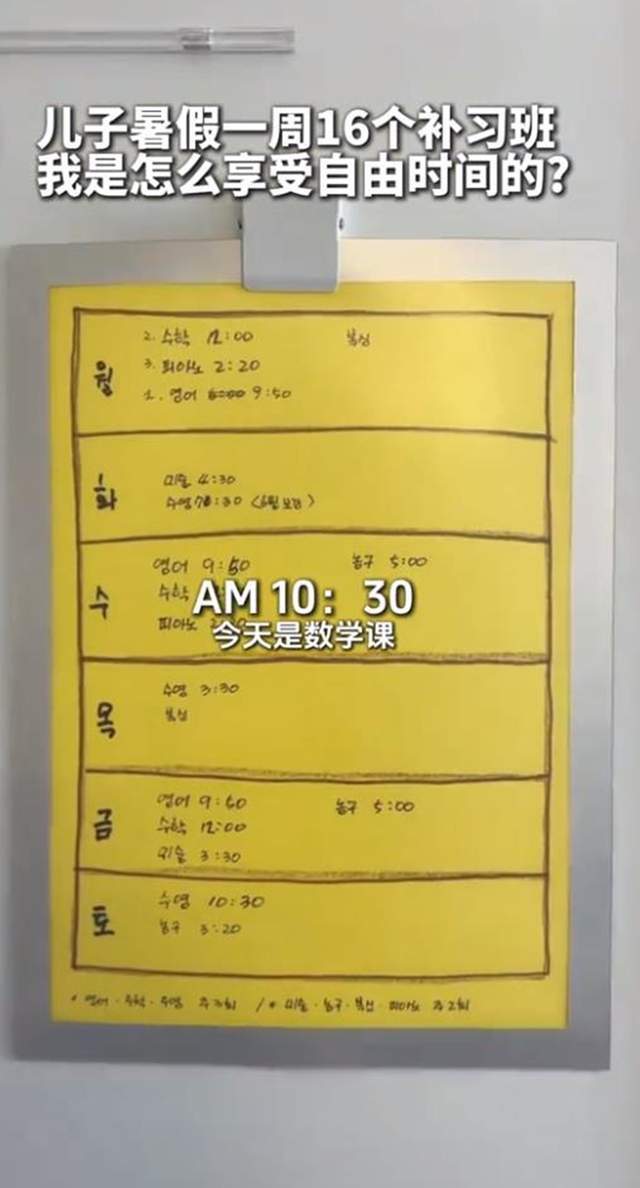 儿子暑假一周16个补习班
我是怎么享受自由时间的?
월
2. 수학 12:00
복싱
3. 피아노 2:20
1. 영어 9:50
화
미술 4:30
수영
수
영어 9:50
농구 5:00
수학
AM 10：30
피아노
今天是数学课
목
수영 3:30
복싱
금
영어 9:50
농구 5:00
수학 12:00
미술 3:30
토
수영 10:30
농구 3:20
* 영어·수학·수영 주3회 / * 미술·농구·복싱·피아노 주2회